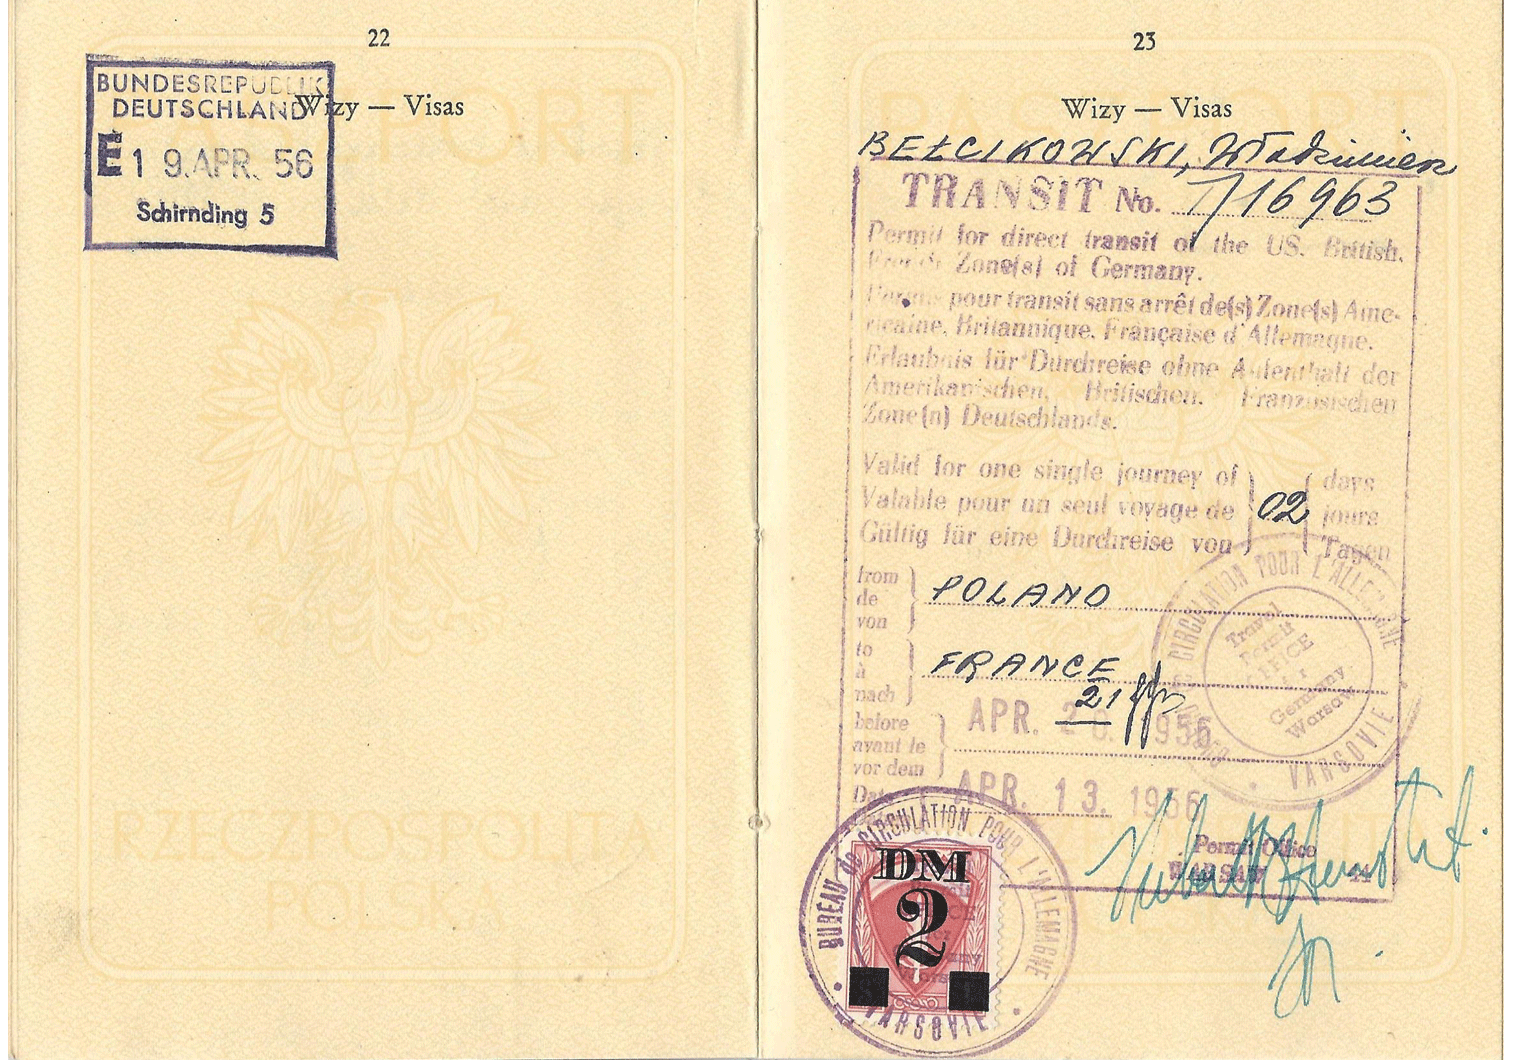 22
Wizy — Visas
BUNDESREPUBLIK
DEUTSCHLAND
E 19. APR. 56
Schirnding 5
PASZPORT
RZECZPOSPOLITA
POLSKA
23
Wizy — Visas
BEŁCIKOWSKI, Włodzimierz
TRANSIT No. T/16963
Permit for direct transit of the US. British.
French Zone(s) of Germany.
Permis pour transit sans arrêt de(s) Zone(s) Ame-
ricaine, Britannique, Française d'Allemagne.
Erlaubnis für Durchreise ohne Aufenthalt der
Amerikanischen, Britischen, Französischen
Zone(n) Deutschlands.
Valid for one single journey of
Valable pour un seul voyage de
Gültig für eine Durchreise von
02
days
jours
Tagen
from
de
von
POLAND
to
à
nach
FRANCE
21
before
avant le
vor dem
APR. 20. 1956
Date
APR. 13. 1956
BUREAU de CIRCULATION POUR L'ALLEMAGNE
VARSOVIE
Travel
Permit
OFFICE
for
Germany
Warsaw
Permit Office
WARSAW
BUREAU de CIRCULATION POUR L'ALLEMAGNE
VARSOVIE
DM
2